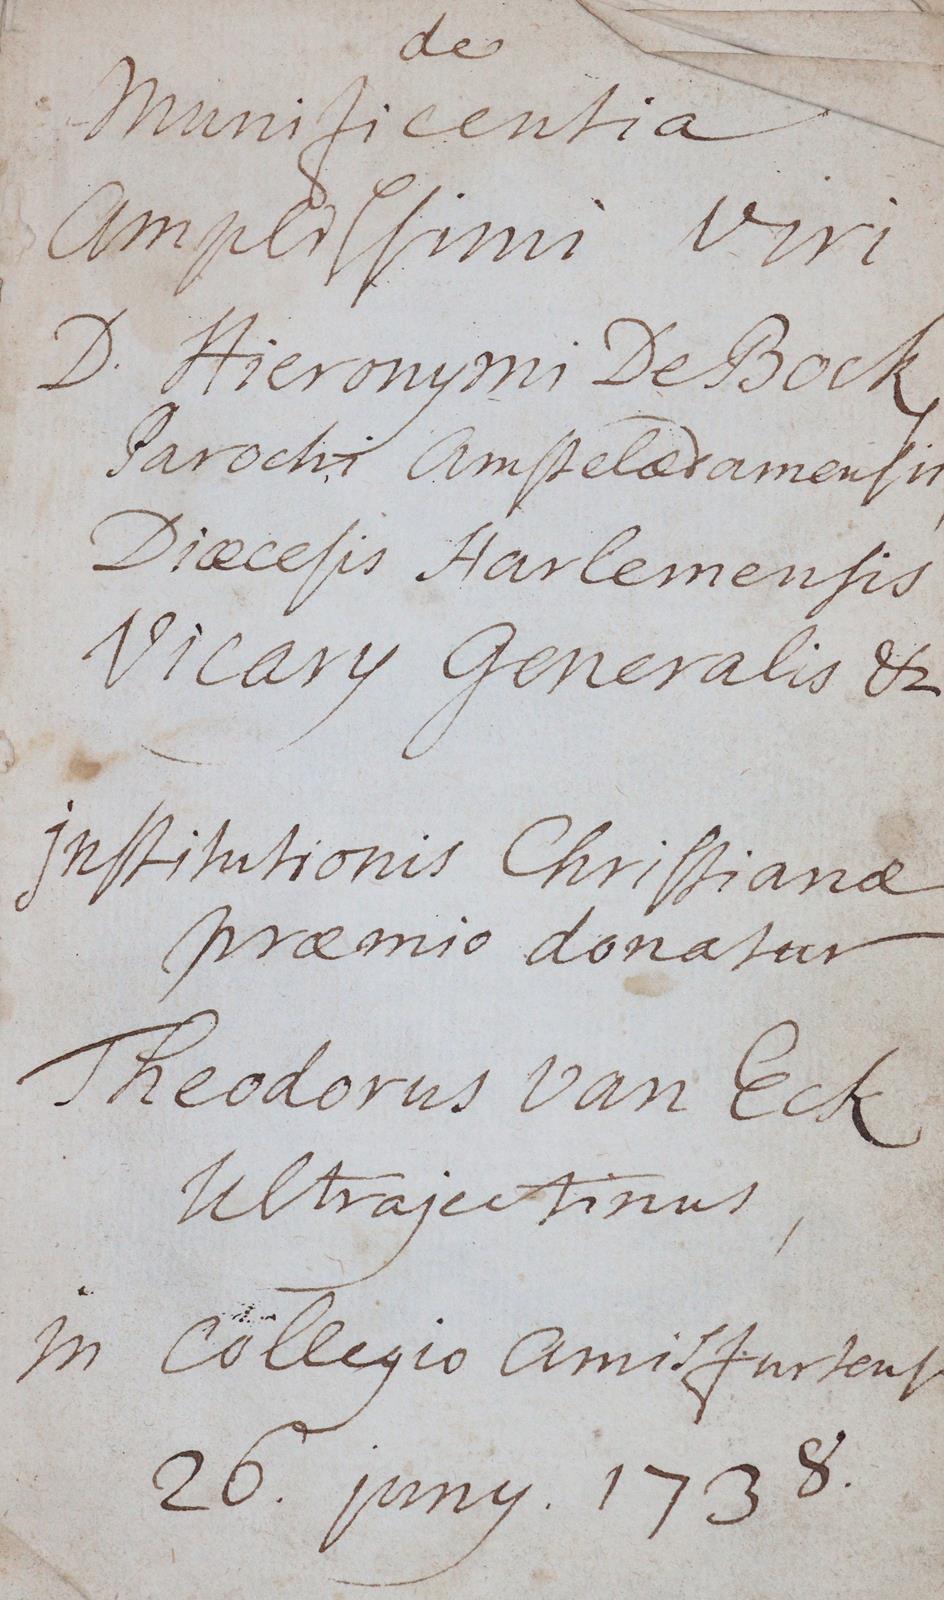 de
Munificentia
Ampliſſimi Viri
D. Hieronymi De Bock
Parochi Amſtelædamenſis
Diæceſis Harlemenſis
Vicary Generalis &
jnſtitutionis Chriſtianæ
præmio donatur
Theodorus van Eck
Ultrajectinus,
in Collegio Amisfurtenſi
26. juny. 1738.